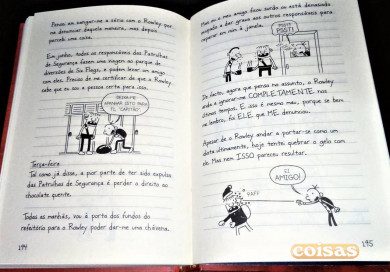 Pensei em zangar-me a sério com o Rowley por
me denunciar daquela maneira, mas depois
percebi uma coisa.
Em junho, todos os responsáveis das Patrulhas
de Segurança fazem uma viagem ao parque de
diversões de Six Flags, e podem levar um amigo
com eles. Preciso de me certificar de que o Rowley
sabe que eu sou a pessoa certa para isso.
DEIXA-ME
APANHAR ISTO PARA
TI, "CAPITÃO".
Terça-feira
Tal como já disse, a pior parte de ter sido expulso
das Patrulhas de Segurança é perder o direito ao
chocolate quente.
Todas as manhãs, vou à porta dos fundos do
refeitório para o Rowley poder dar-me uma chávena.
194
Mas ou o meu amigo ficou surdo ou está demasiado
ocupado a dar graxa aos outros responsáveis para
reparar em mim à janela.
PSSTT!
PSST!
De facto, agora que penso no assunto, o Rowley
anda a ignorar-me COMPLETAMENTE nos
últimos tempos. E isso é mesmo mau, porque se bem
me lembro, foi ELE que ME denunciou.
Apesar de o Rowley andar a portar-se como um
idiota ultimamente, hoje tentei quebrar o gelo com
ele. Mas nem ISSO pareceu resultar.
EI
AMIGO!
195
coisas